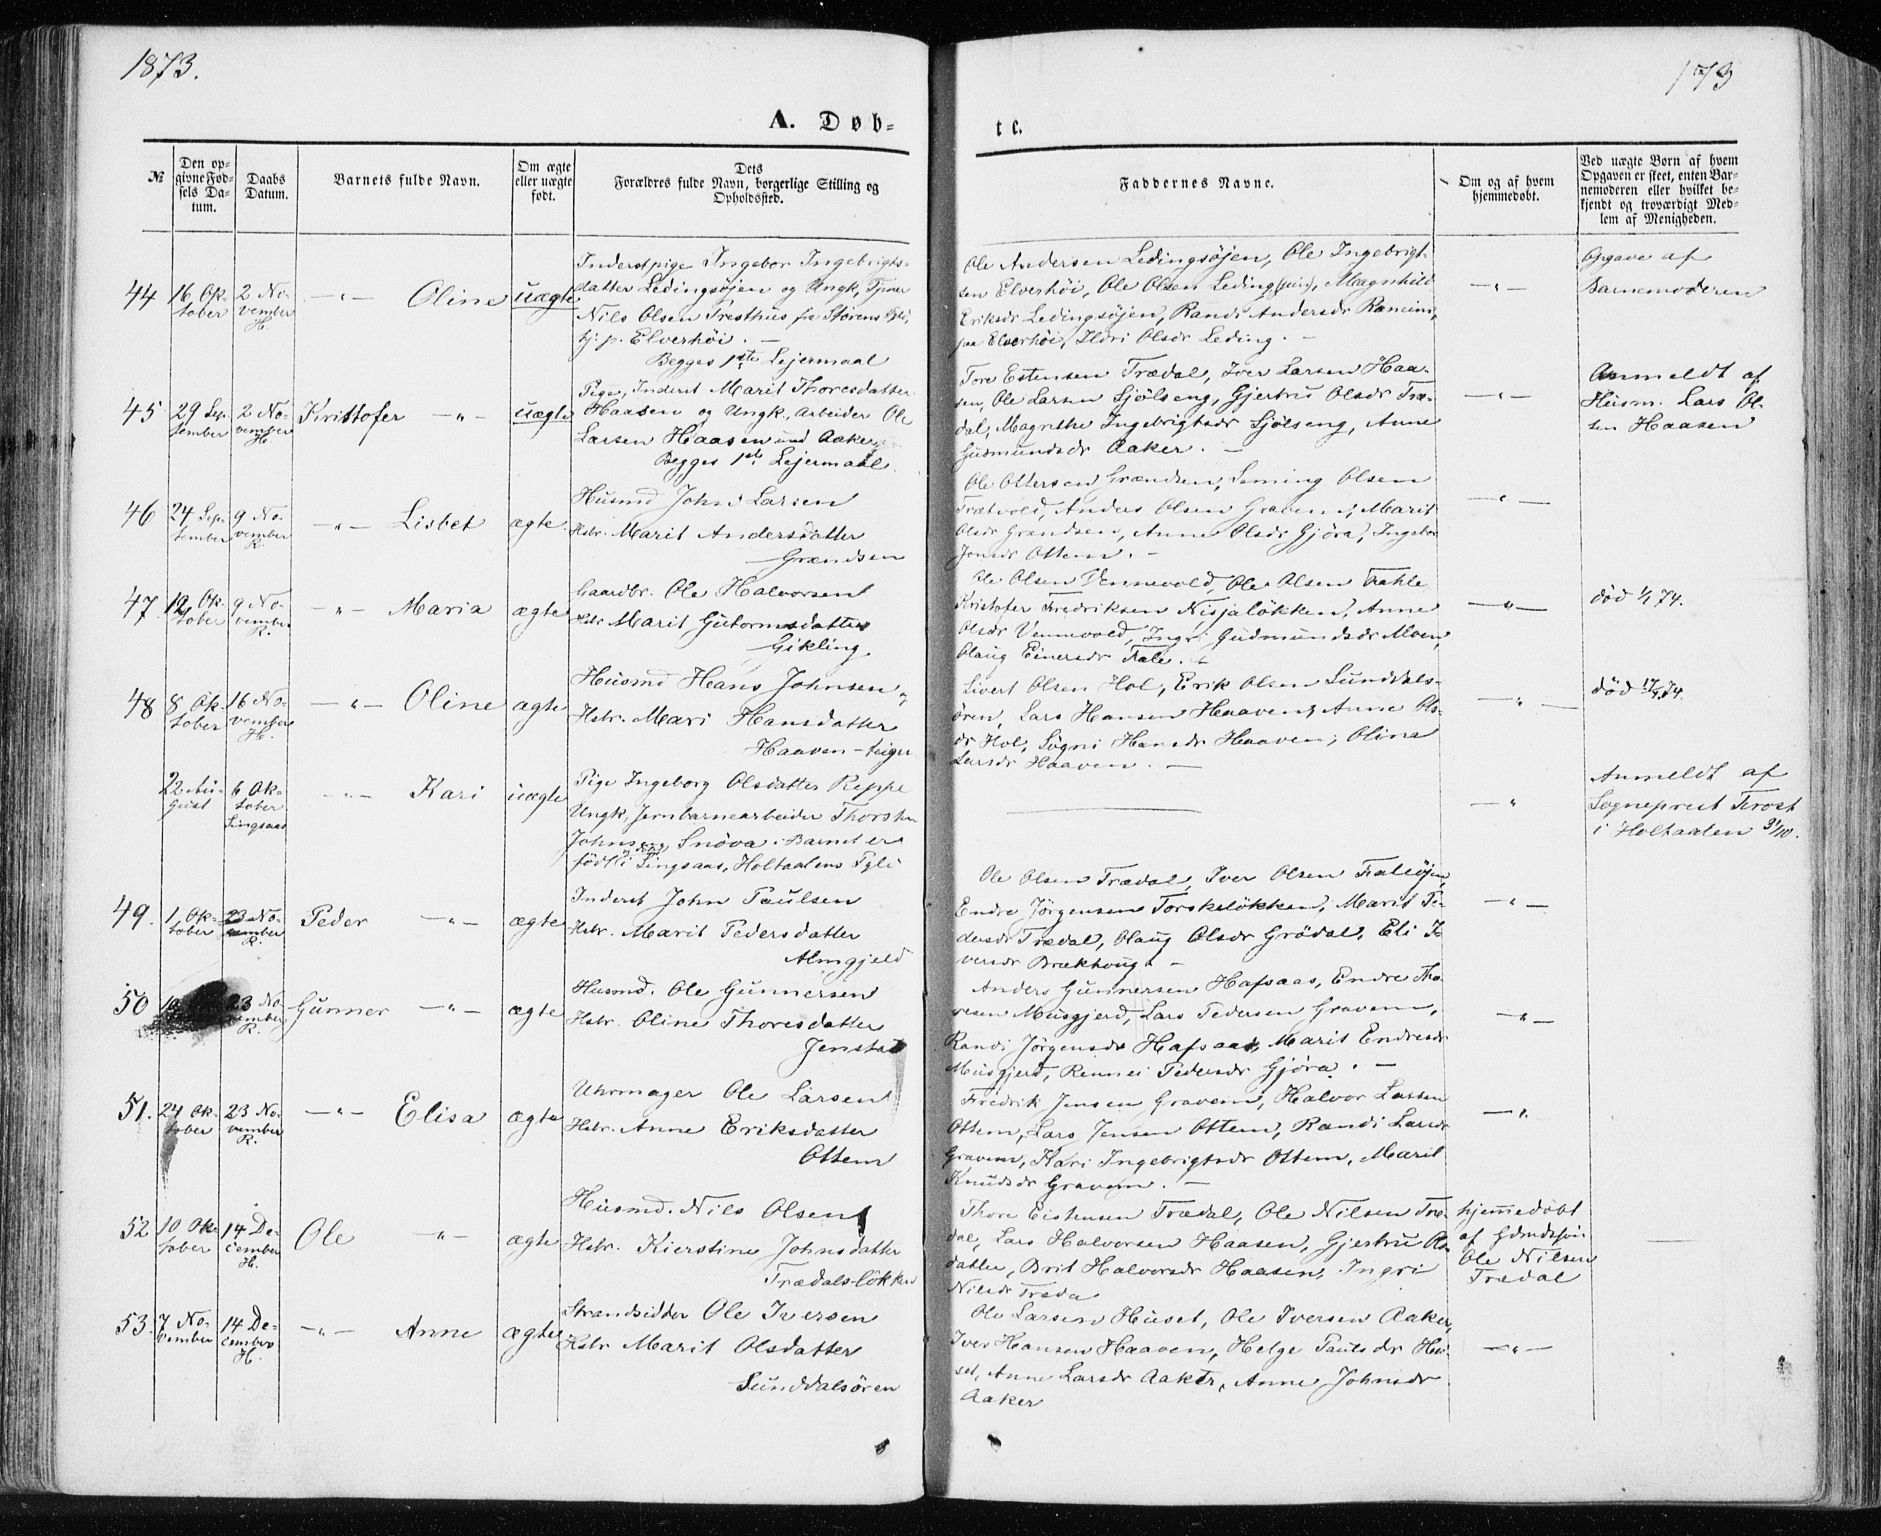 1873.
173
A. Døb-
te.
№
Den op-
givne Fød-
sels Da-
tum.
Daabs
Datum.
Barnets fulde Navn.
Om ægte
eller uægte
født.
Dets
Forældres fulde Navn, borgerlige Stilling og
Opholdssted.
Faddernes Navne.
Om og af hvem
hjemmedøbt.
Ved uægte Børn af hvem
Opgaven er skeet, enten Bar-
nemoderen eller hvilket be-
kjendt og troværdigt Med-
lem af Menigheden.
44
16 Ok-
tober
2 No-
vember
H.
—"—
Oline
uægte
Inderstpige Ingebor Ingebrigts-
datter Ledingsøjen og Ungk, Tjener
Nils Olsen Presthus fra Størens Pgld,
tj. p. Elverhöi. —
Begges 1ste Lejermaal
Ole Andersen Ledingsøjen, Ole Ingebrigt-
sen Elverhöi, Ole Olsen Leding (jun), Magnhild
Eriksdr Ledingsøjen, Randi Andersdr
paa Elverhöi, Ildri Olsdr Leding. —
—"—
Opgave af
Barnemoderen
45
29 Sep-
tember
2 No-
vember
H.
Kristofer
—"—
uægte
Pige, Inderst Marit Thoresdatter
Haasen og Ungk, Arbeider Ole
Larsen Haasen und Aaker.
Begges 1ste Lejermaal.
Tore Estensen Trædal, Iver Larsen Haa-
sen, Ole Larsen Sjölseng, Gjertru Olsdr Træ-
dal, Magrethe Ingebrigtsdr Sjölseng, Anne
Gudmundsdr Aaker. —
—"—
Anmeldt af
Husm. Lars Ol-
sen Haasen
46
24 Sep-
tember
9 No-
vember
R.
—"—
Lisbet
ægte
Husmd John Larsen
Hstr. Marit Andersdatter
Grændsen
Ole Ottersen Grændsen, Olsen
Trætvold, Anders Olsen Gravem, Marit
Olsdr Grændsen, Anne Olsdr Gjöra, Ingebor
Jonsdr Ottem. —
—"—
47.
12 Ok-
tober
9 No-
vember
R.
—"—
Maria
ægte
Gaardbr. Ole Halvorsen
Hstr Marit Guttormsdatter
Gikling.
Ole Olsen Vennevold, Ole Olsen Fahle
Kristofer Fredriksen Nisjalökken, Anne
Olsdr Vennevold, Ingri Gudmundsdr Moen,
Olaug Einersdr Fale. —
—"—
död 1/1 74.
48
8 Ok-
tober
16 No-
vember
H.
—"—
Oline
ægte
Husmd Hans Johnsen og
Hstr. Mari Hansdatter
Haaven-teigen
Sivert Olsen Hol, Erik Olsen Sunddals-
ören, Lars Hansen Haaven, Anne Ols-
dr Hol, Signi Hansdr Haaven, Olina
Larsdr Haaven. —
—"—
22 Au-
gust
6 Ok-
tober
Singsaas
—"—
Kari
uægte
Pige Ingeborg Olsdatter Reppe
Ungk, Jernbanearbeider Thorsten
Johnsen, Snöva. Barnet er
födt i Singsaas, Holtaalens Pgld
—"
Anmeldt af
Sogneprest Trost
i Holtaalen 31/10.
49.
1 Ok-
tober
23 No-
vember
R.
Peder
—"—
ægte
Inderst John Paulsen
Hstr. Marit Pedersdatter
Almgjeld
Ole Olsen Trædal, Iver Olsen Faleöjen,
Endre Jörgensen Torskelökken, Marit Pe-
dersdr Trædal, Olaug Olsdr Grödal, Eli I-
versdr Brækhaug. —
—"—
50
23 No-
vember
R.
Gunner
—"—
ægte
Husmd. Ole Gunnersen
Hstr. Oline Thoresdatter
Jenstad
Anders Gunnersen Hafsaas, Endre Tho-
resen Musgjerd, Lars Pedersen Gravem,
Randi Jörgensdr Hafsaas, Marit Endresdr
Musgjerd, Rennei Pedersdr Gjöra. —
—"—
51.
24 Ok-
tober
23 No-
vember
R.
—"—
Elisa
ægte
Uhrmager Ole Larsen
Hstr. Anne Eriksdatter
Ottem
Fredrik Jensen Gravem, Halvor Larsen
Ottem, Lars Jensen Ottem, Randi Larsdr
Gravem, Kari Ingebrigtsdr Ottem, Marit
Knudsdr Gravem. —
—"
52
10 Ok-
tober
14 De-
cember
H.
Ole
—"—
ægte
Husmd. Nils Olsen
Hstr. Kierstine Johnsdatter
Trædalslökken
Thore Eistensen Trædal, Ole Nilsen Træ-
dal, Lars Halvorsen Haasen, Gjertru Ols-
datter, Brit Halvorsdr Haasen, Ingri
Nilsdr Træda
hjemmedöbt
af
Ole Nilsen
Trædal
53.
7 No-
vember
14 De-
cember
H.
—"—
Anne
ægte
Strandsidder Ole Iversen
Hstr Marit Olsdatter
Sunddalsören
Ole Larsen Huset, Ole Iversen Aaker,
Iver Hansen Haaven, Helge Paulsdr Hu-
set, Anne Larsdr Aaker, Anne Johnsdr
Aaker
—"—
död 17/4 74.